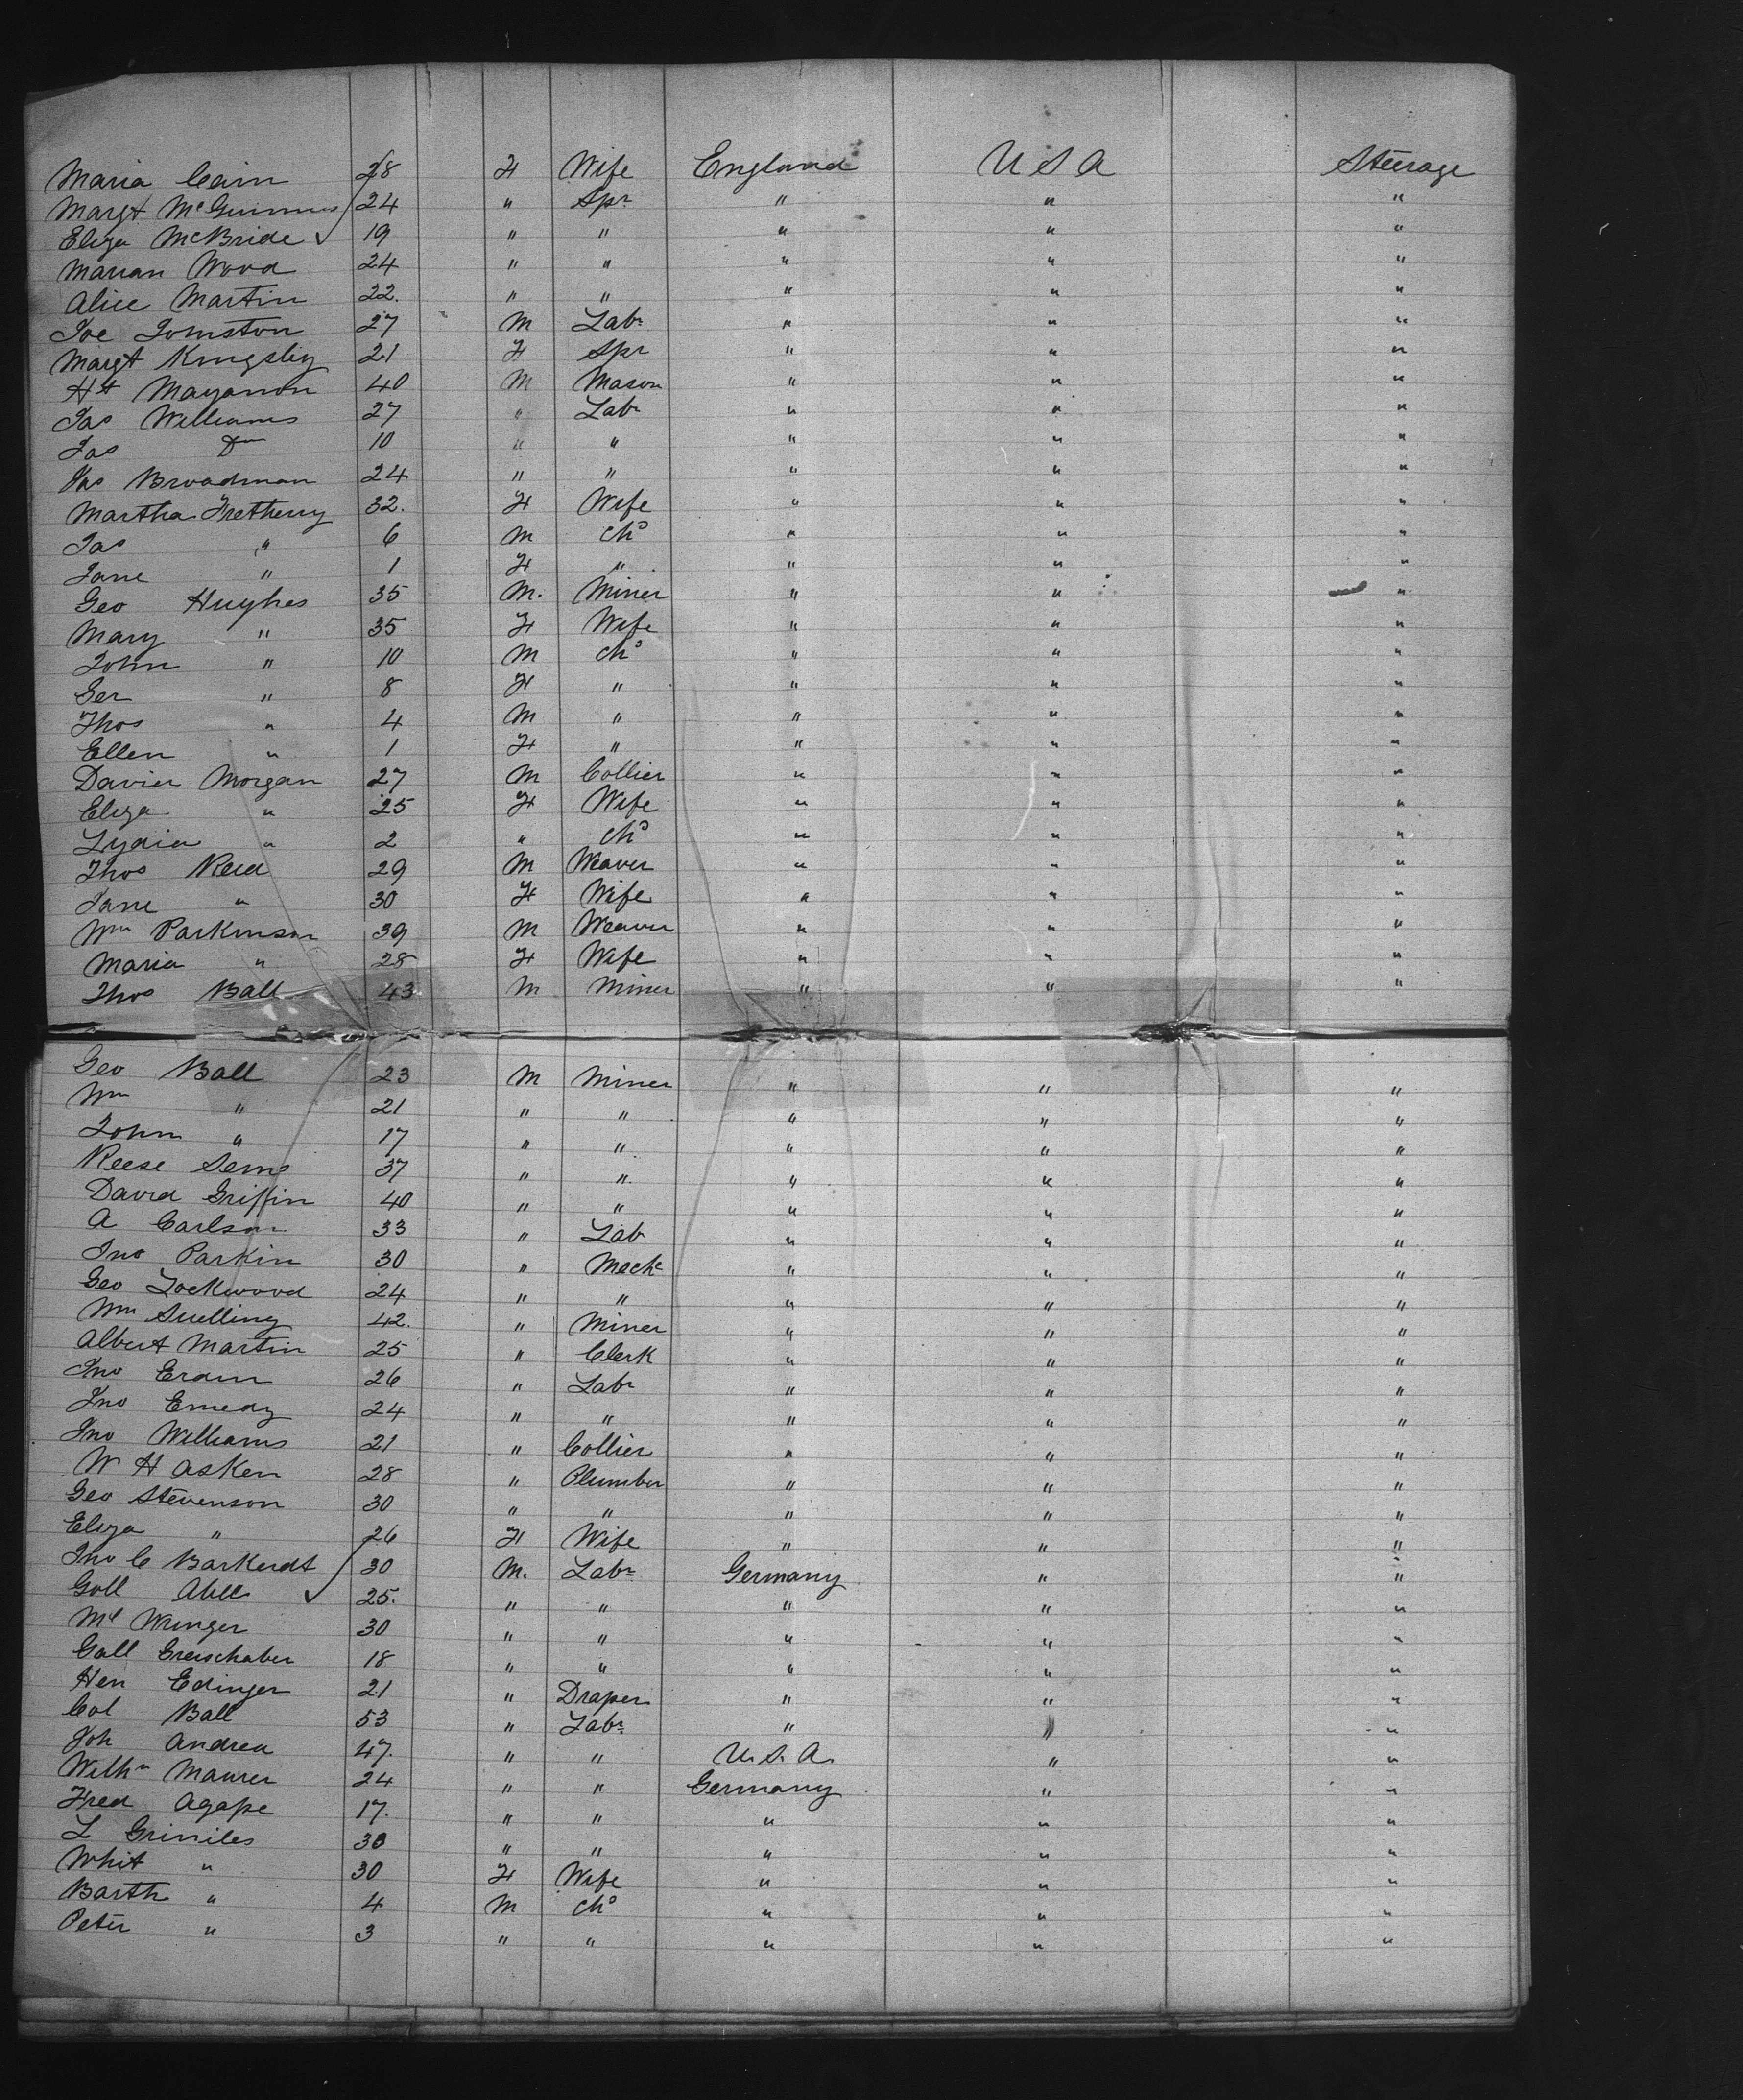 Maria Cain 28 F Wife England U S A Steerage
Margt McGuinness 24 " Spr " " "
Eliza McBride 19 " " " " "
Marian Wood 24 " " " " "
Alice Martin 22. " " " " "
Joe Johnston 27 M Labr " " "
Margt Kingsley 21 F Spr " " "
Hy 40 M Mason " " "
Jas Williams 27 " Labr " " "
Jas Do 10 " " " " "
Jas Broadman 24 " " " " "
Martha Tretheny 32. F Wife " " "
Jas " 6 M Chd " " "
Jane " 1 F " " " "
Geo Hughes 35 M. Miner " " "
Mary " 35 F Wife " " "
John " 10 M Chd " " "
Ger " 8 F " " " "
Thos " 4 M " " " "
Ellen " 1 F " " " "
David Morgan 27 M Collier " " "
Eliza " 25 F Wife " " "
Lydia " 2 " Chd " " "
Thos Reid 29 M Weaver " " "
Jane " 30 F Wife " " "
Wm Parkinson 39 M Weaver " " "
Maria " 28 F Wife " " "
Thos Ball 43 M Miner " " "
Geo Ball 23 M Miner " " "
Wm " 21 " " " " "
John " 17 " " " " "
Reese 37 " " " " "
David Griffin 40 " " " " "
A Carlson 33 " Lab " " "
Jno Parkin 30 " Mech " " "
Geo Lockwood 24 " " " " "
Wm Snelling 42. " Miner " " "
Albert Martin 25 " Clerk " " "
Jno 26 " Labr " " "
Jno 24 " " " " "
Jno Williams 21 " Collier " " "
W H Asken 28 " Plumber " " "
Geo Stevenson 30 " " " " "
Eliza " 26 F Wife " " "
Jno C 30 M. Labr Germany " "
25. " " " " "
30 " " " " "
18 " " " " "
Hen Edinger 21 " Draper " " "
Col Ball 53 " Labr " " "
Joh Andrea 47. " " U. S. A. " "
Wilhm Maurer 24 " " Germany " "
Fred Agape 17. " " " " "
L Griniles 30 " " " " "
Whit " 30 F Wife " " "
Barth " 4 M Chd " " "
Peter " 3 " " " " "